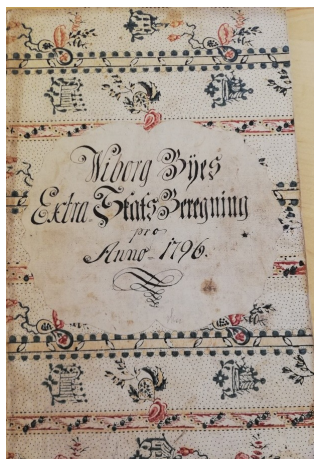 Wiborg Byes
Extra Skats Beregning
pro
Anno 1796.